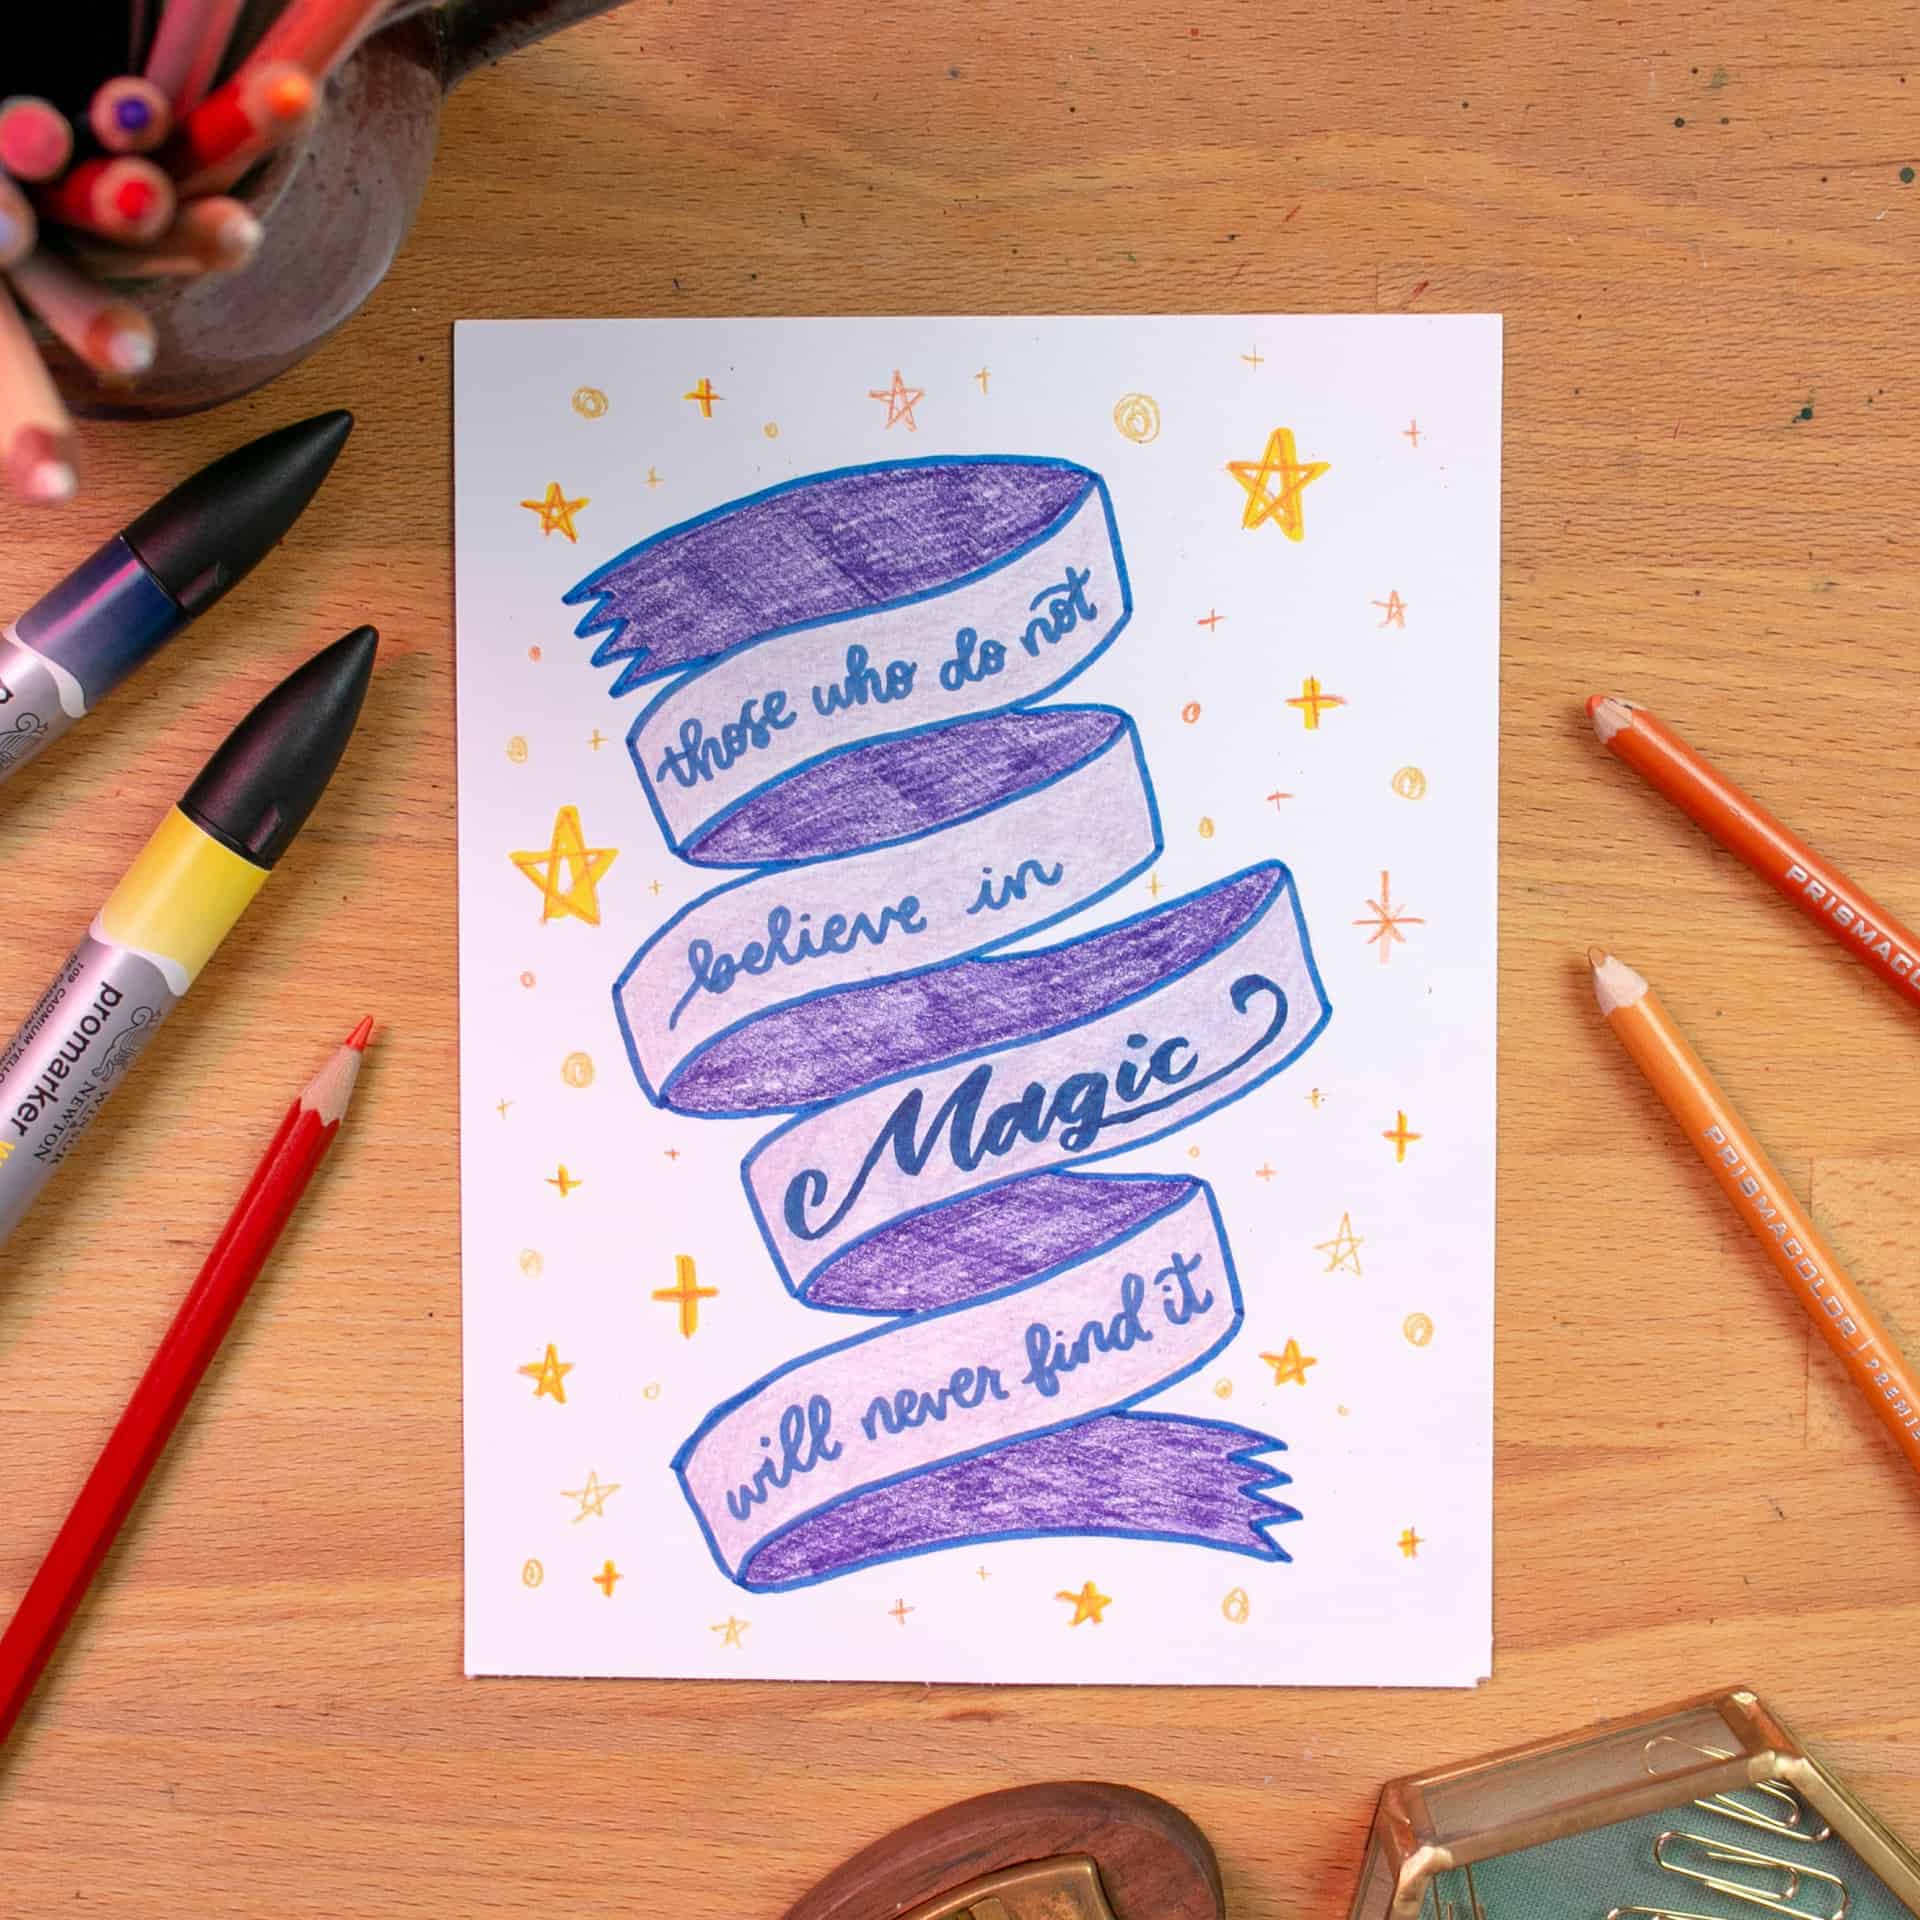 those who do not
believe in
Magic
will never find it
promarker
WINSOR
& NEWTON
109 CADMIUM YELLOW
PRISMACOLOR
PRISMACOLOR